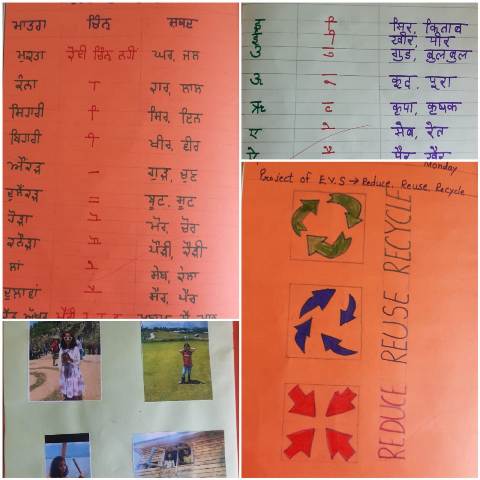 ਮਾਤਰਾ ਚਿੰਨ ਸ਼ਬਦ
ਮੁਕਤਾ ਕੋਈ ਚਿੰਨ ਨਹੀਂ ਘਰ, ਜਲ
ਕੰਨਾ ਾ ਹਾਰ, ਲਾਲ
ਸਿਹਾਰੀ ਿ ਸਿਰ, ਦਿਨ
ਬਿਹਾਰੀ ੀ ਖੀਰ, ਵੀਰ
ਔਂਕੜ ੁ ਗੁੜ,
ਦੁਲੈਂਕੜ ੂ ਬੂਟ, ਸੂਟ
ਹੋੜਾ ੋ ਮੋਰ, ਚੋਰ
ਕਨੌੜਾ ੌ ਪੌੜੀ,
ਲਾਂ ੇ ਸੇਬ, ਕੇਲਾ
ਦੁਲਾਵਾਂ ੈ ਸੈਰ, ਪੈਰ
इ ि सिर, किताब
ई ी खीर, पीर
उ ु गुड़, बुलबुल
ऊ ू कूद, पूरा
ऋ ृ कृपा, कृषक
ए े सेब, रेत
ऐ ै पैर, खैर
Monday
Project of E.V.S → Reduce, Reuse, Recycle
REDUCE REUSE RECYCLE